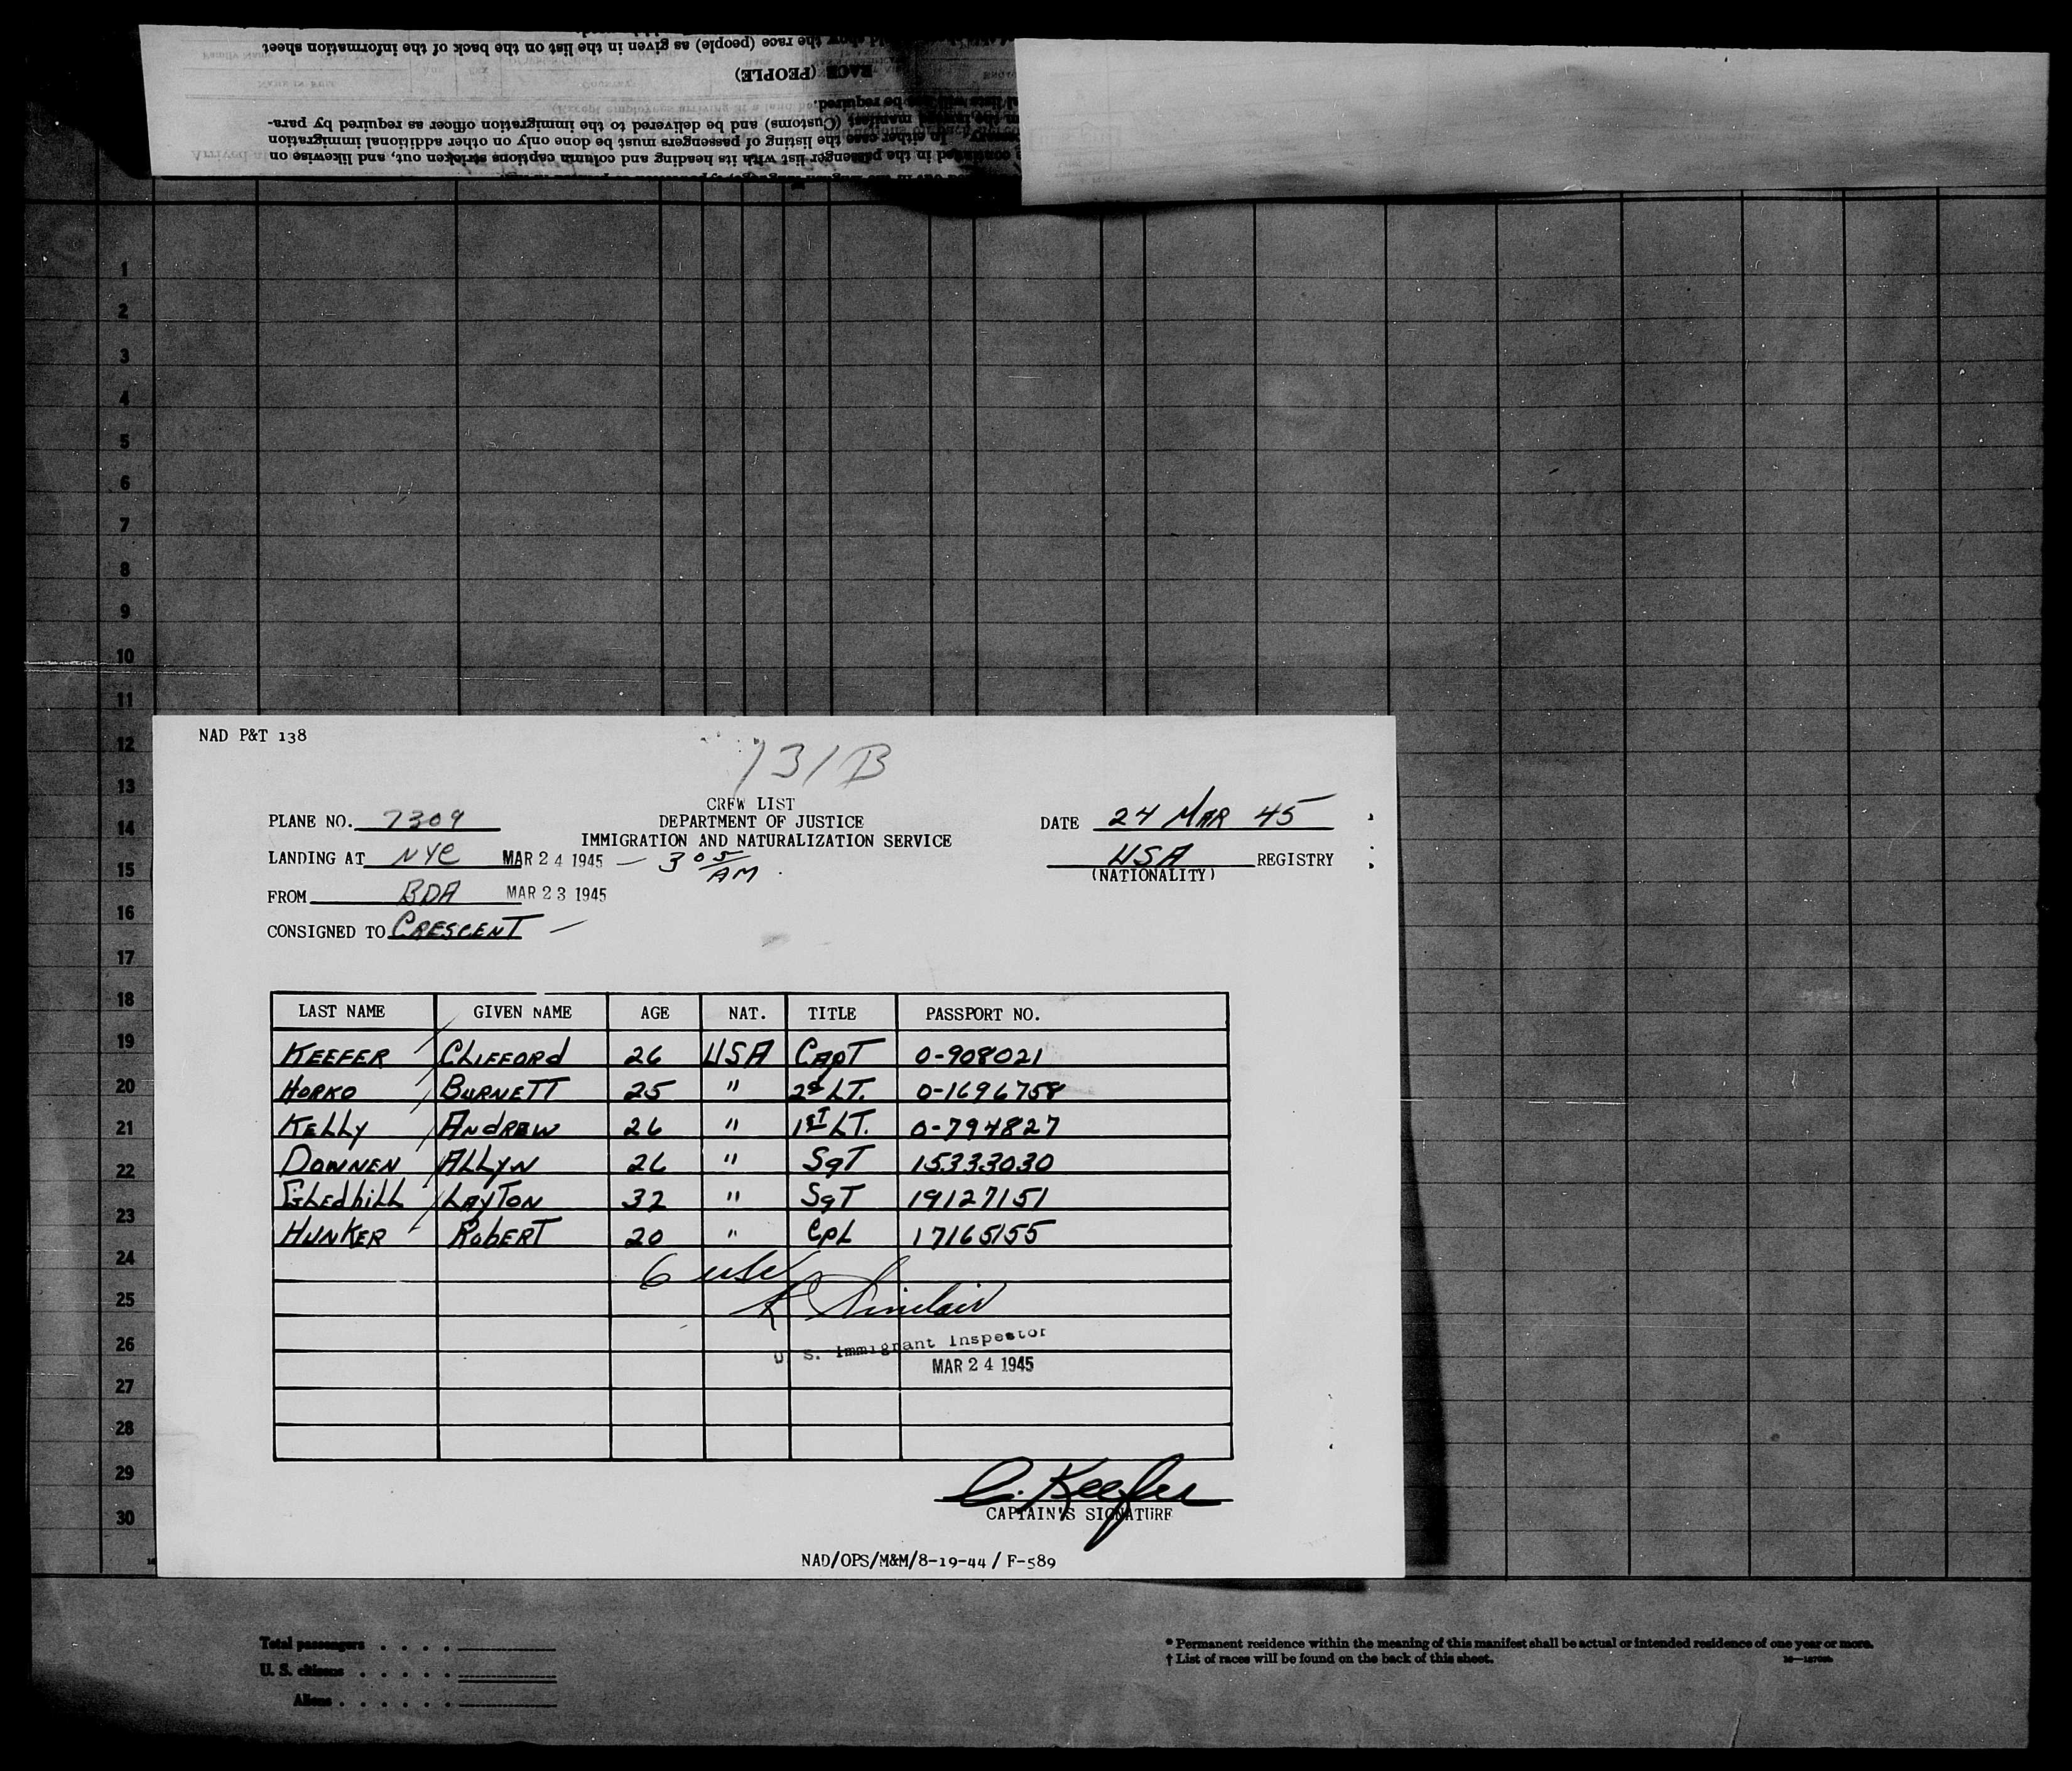 (as given in the list on the back of the information sheet
RACE (PEOPLE)
be required.
manifest (Customs) and be delivered to the immigration officer as required by para-
In either case the listing of passengers must be done only on other additional immigration
in the passenger list with its heading and column captions stricken out, and likewise on
1
2
3
4
5
6
7
8
9
10
11
12
13
14
15
16
17
18
19
20
21
22
23
24
25
26
27
28
29
30
NAD P&T 138
131B
CREW LIST
PLANE NO. 7309 DEPARTMENT OF JUSTICE DATE 24 MAR 45
IMMIGRATION AND NATURALIZATION SERVICE
LANDING AT NYC MAR 24 1945 — 3 05 AM USA REGISTRY
(NATIONALITY)
FROM BDA MAR 23 1945
CONSIGNED TO CRESCENT —
LAST NAME GIVEN NAME AGE NAT. TITLE PASSPORT NO.
KEEFER CLIFFORD 26 USA CAPT 0-908021
HORKO BURNETT 25 " 2d LT. 0-1696758
KELLY ANDREW 26 " 1ST LT. 0-794827
DOWNEN ALLYN 26 " SGT 15333030
GLEDHILL LAYTON 32 " SGT 19127151
HUNKER ROBERT 20 " CPL 17165155
6 usc
K Sinclair
U. S. Immigrant Inspector
MAR 24 1945
C. Keefer
CAPTAIN'S SIGNATURE
NAD/OPS/M&M/8-19-44 / F-589
Total passengers
U. S. citizens
Aliens
* Permanent residence within the meaning of this manifest shall be actual or intended residence of one year or more.
† List of races will be found on the back of this sheet.